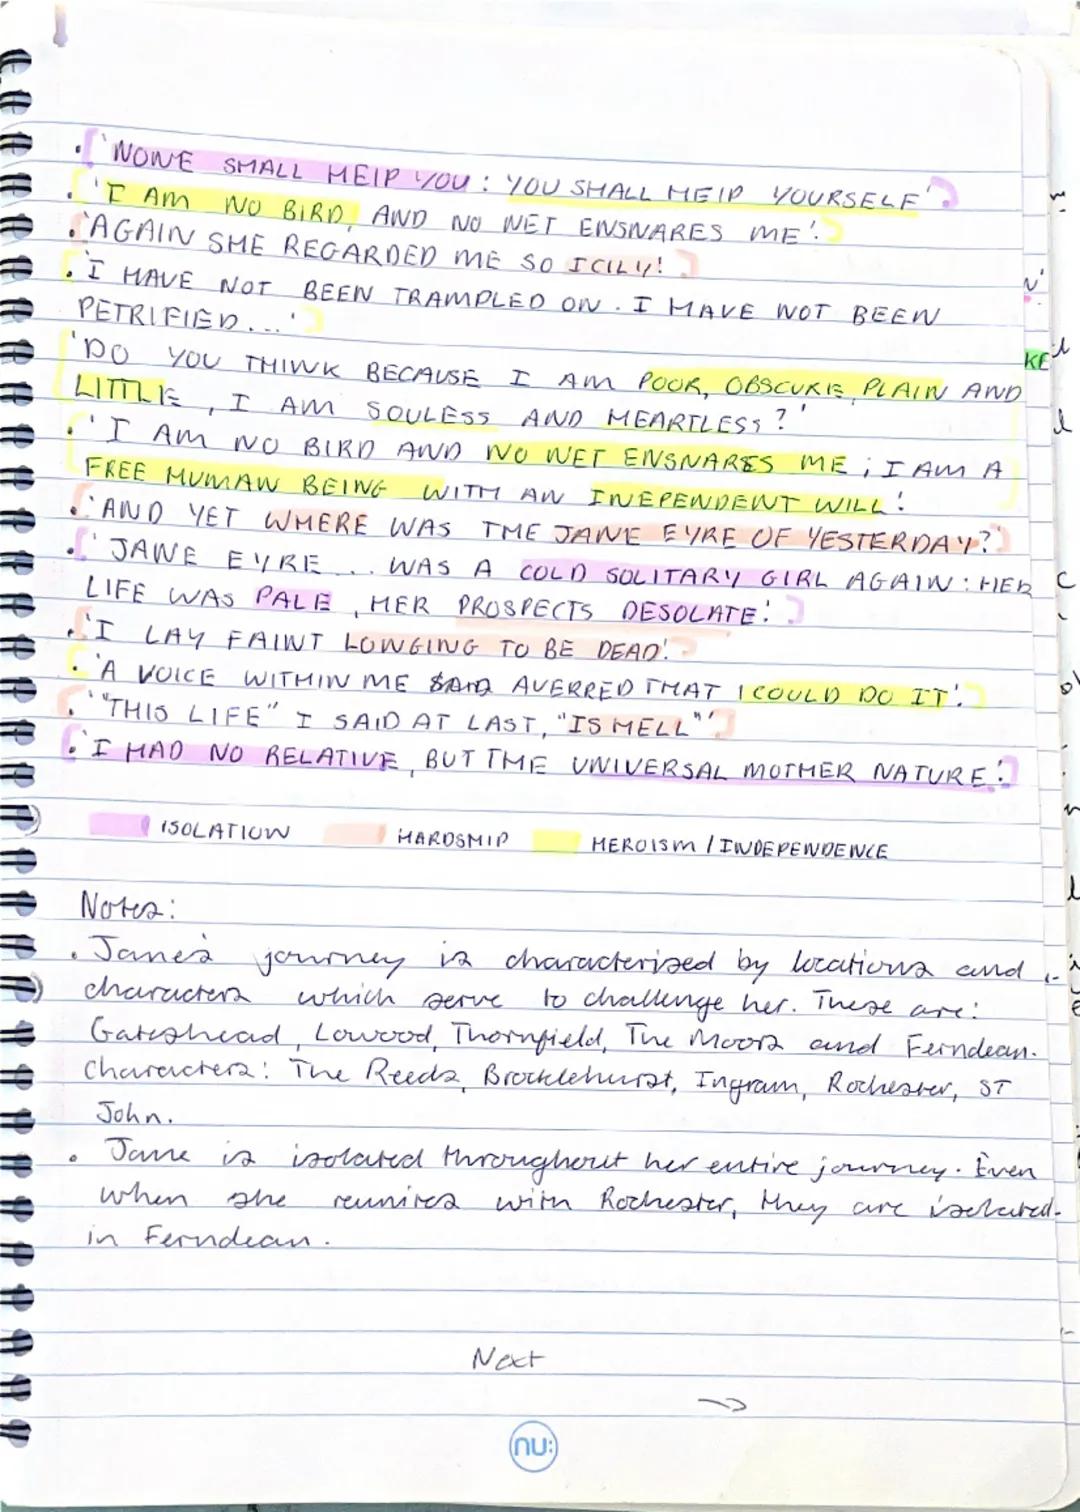 . 'NONE SHALL HELP YOU : YOU SHALL HELP YOURSELF'
. 'I AM NO BIRD, AND NO NET ENSNARES ME'.
. 'AGAIN SHE REGARDED ME SO ICILY!
. 'I HAVE NOT BEEN TRAMPLED ON . I HAVE NOT BEEN
PETRIFIED ...'
'DO YOU THINK BECAUSE I AM POOR, OBSCURE, PLAIN AND
LITTLE, I AM SOULESS AND HEARTLESS ?'
. 'I AM NO BIRD AND NO NET ENSNARES ME ; I AM A
FREE HUMAN BEING WITH AN INEPENDENT WILL'.
. 'AND YET WHERE WAS THE JANE EYRE OF YESTERDAY?'
. 'JANE EYRE ... WAS A COLD SOLITARY GIRL AGAIN : HER
LIFE WAS PALE , HER PROSPECTS DESOLATE'.
. 'I LAY FAINT LONGING TO BE DEAD'.
. 'A VOICE WITHIN ME AVERRED THAT I COULD DO IT'.
. '"THIS LIFE" I SAID AT LAST, "IS HELL"'
. 'I HAD NO RELATIVE, BUT THE UNIVERSAL MOTHER NATURE'.
ISOLATION HARDSHIP HEROISM / INDEPENDENCE
Notes:
. Jane's journey is characterised by locations and
characters which serve to challenge her. These are:
Gateshead, Lowood, Thornfield, The Moors and Ferndean.
Characters: The Reeds, Brocklehurst, Ingram, Rochester, ST
John.
. Jane is isolated throughout her entire journey. Even
when she reunites with Rochester, they are isolated
in Ferndean.
Next
nu:
KE